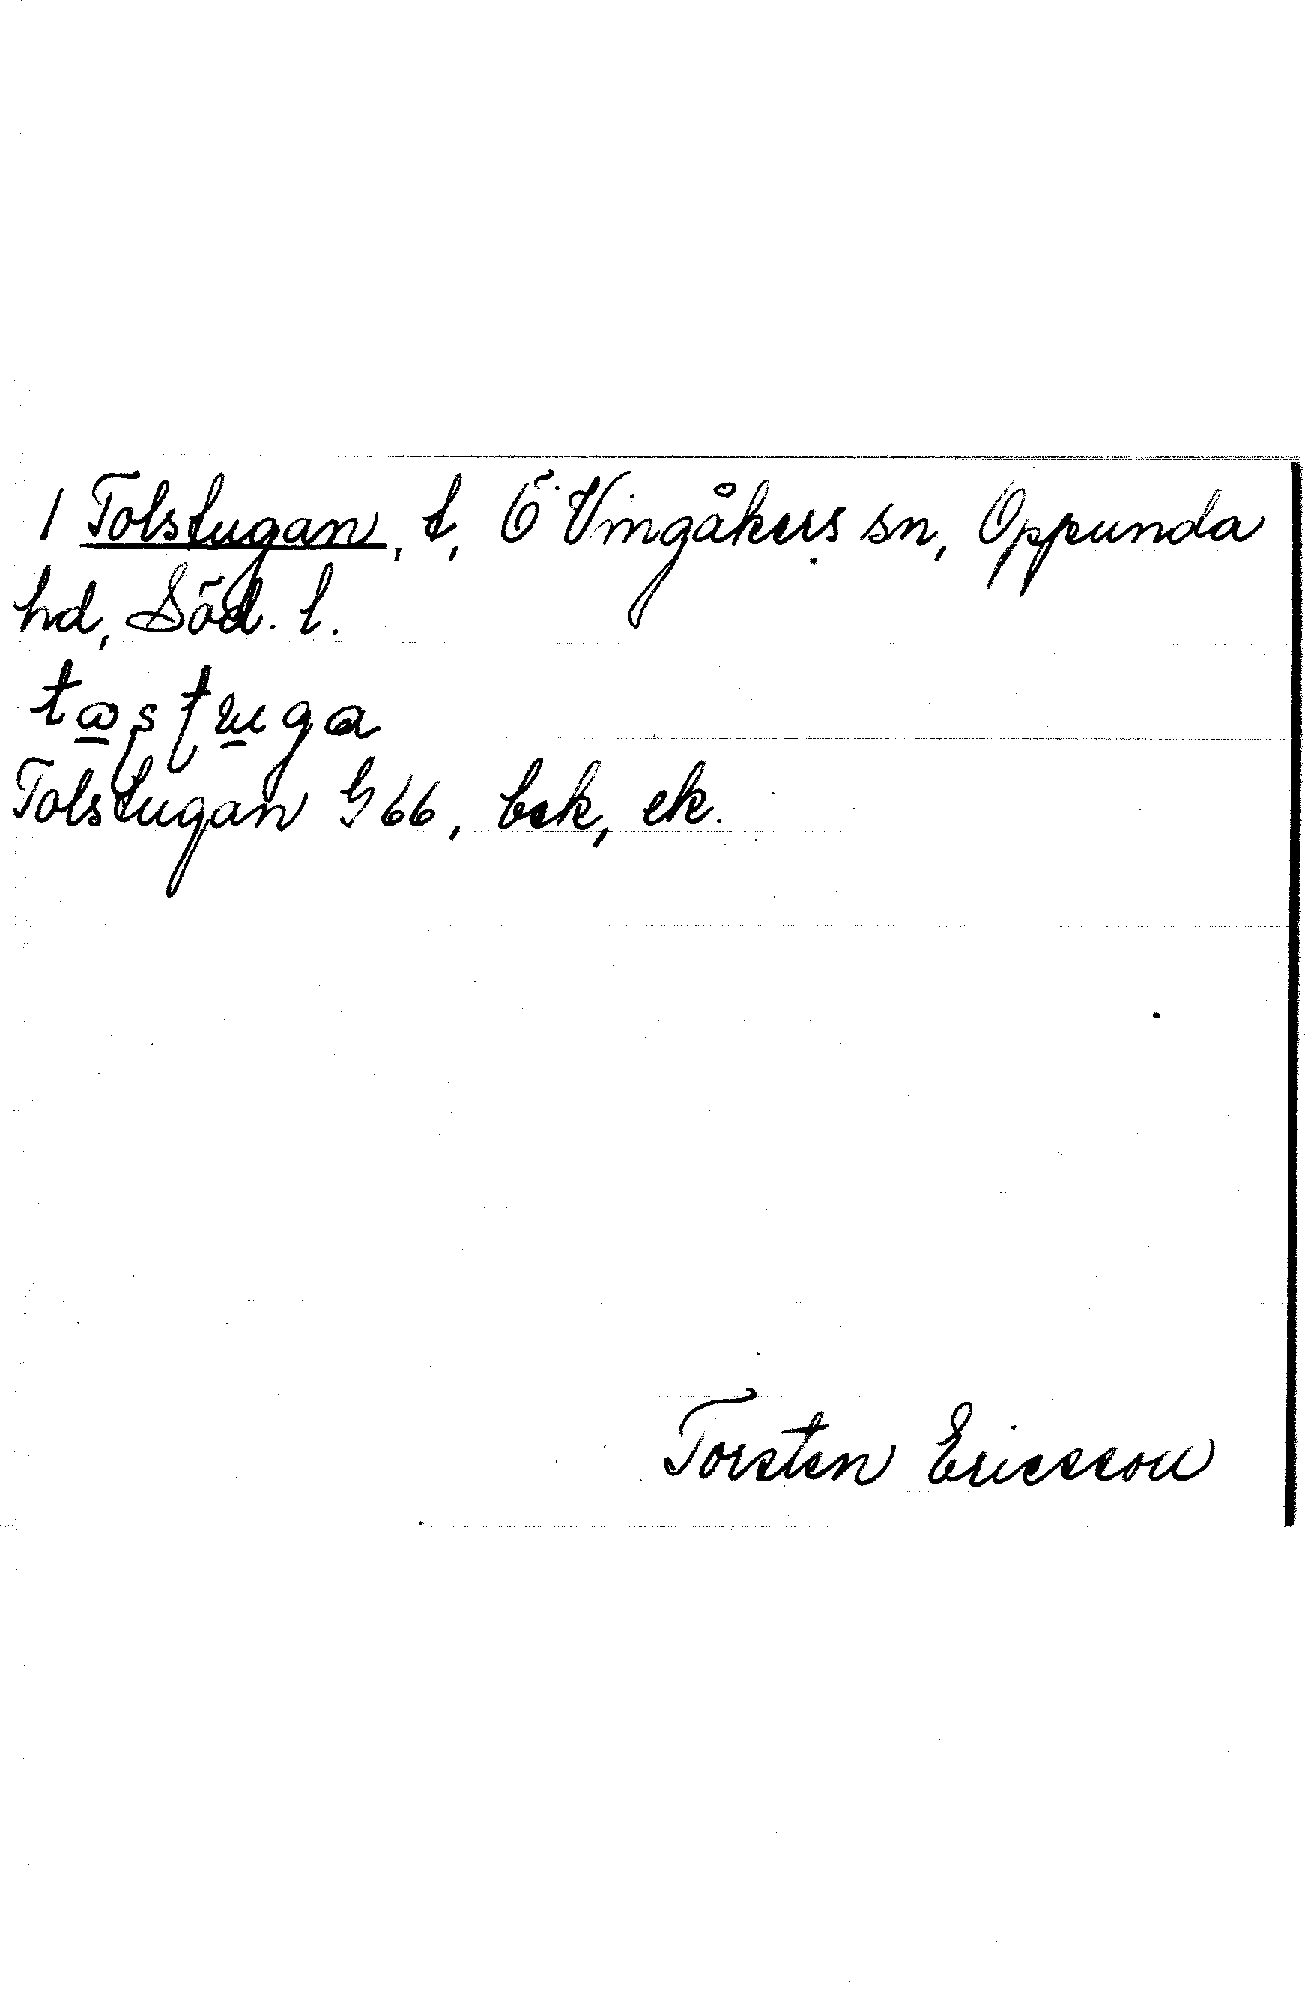 1 Tolstugan, t, Ö Vingåkers sn, Oppunda
hd, Söd. l.
Tolstugan G 66, bek, ek.
Torsten Ericsson